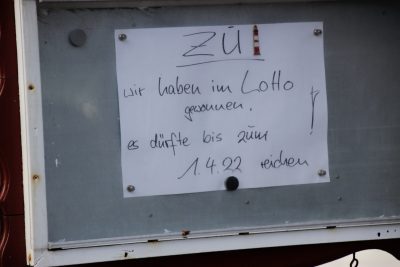 ZU!
wir haben im Lotto
gewonnen.
es dürfte bis zum
1.4.22 reichen !